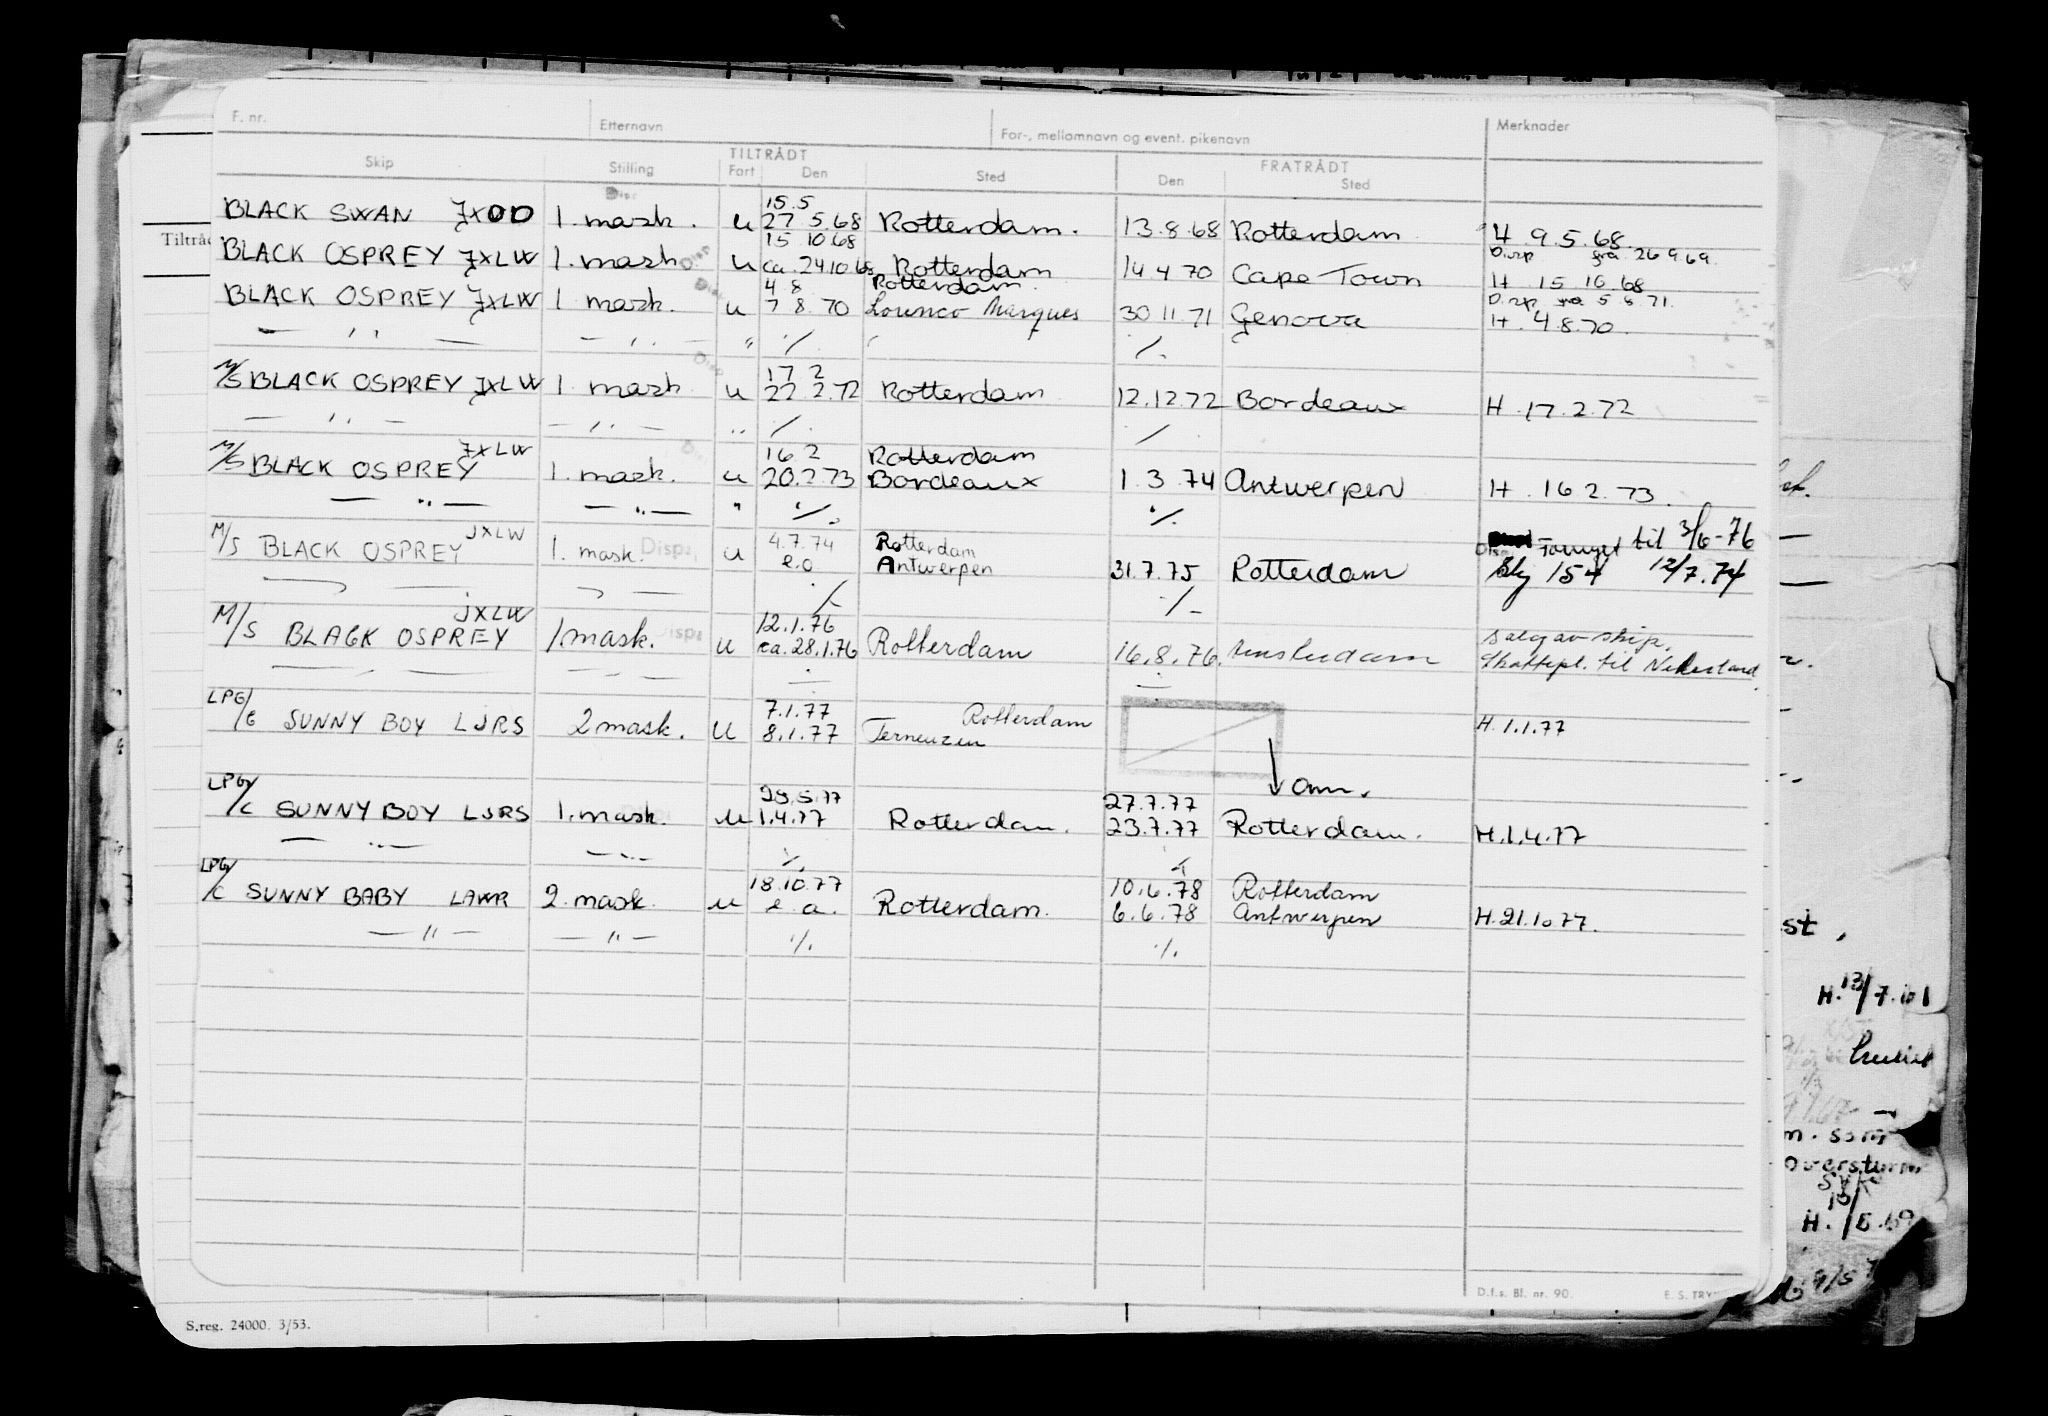 F. nr. Etternavn For-, mellomnavn og event. pikenavn Merknader
TILTRÅDT FRATRÅDT
Skip Stilling Fart Den Sted Den Sted
15.5
BLACK SWAN JXOD 1. mask. u 27.5.68 Rotterdam. 13.8.68 Rotterdam H. 9.5.68.
15 10 68 Disp fra 26 9 69.
BLACK OSPREY JXLW 1. mask u ca. 24.10.68 Rotterdam 14 4 70 Cape Town H 15 10 68
4 8 Rotterdam Disp fra 5 8 71.
BLACK OSPREY JXLW 1. mask. u 7 8.70 Lourenco Marques 30 11.71 Genova H. 4.8.70.
— '' — — '' — '' ·/. ·/.
17 2
M/S BLACK OSPREY JXLW 1. mask u 22.2.72 Rotterdam 12.12.72 Bordeaux H. 17.2.72
— '' — — '' — '' ·/. ·/.
JXLW 16 2 Rotterdam
M/S BLACK OSPREY 1. mask. u 20.2.73 Bordeaux 1.3.74 Antwerpen H. 16 2.73.
— '' — — '' — '' ·/. ·/.
JXLW 4.7.74 Rotterdam Disp Fornyet til 3/6-76
M/S BLACK OSPREY 1. mask. Disp. u e.o Antwerpen 31.7.75 Rotterdam 154 12/7.74
·/. ·/.
JXLW 12.1.76
M/S BLACK OSPREY 1. mask. Disp u ca. 28.1.76 Rotterdam 16.8.76. Amsterdam Salg av skip.
til Nederland.
LPG/C SUNNY BOY LJRS 2 mask. u 7.1.77 Rotterdam H. 1.1.77
8.1.77 Terneuzen
om.
LPG/C SUNNY BOY LJRS 1. mask. u 1.4.77 Rotterdam. 27.7.77
23.7.77 Rotterdam. H.1.4.77
— '' — — '' — ·/. ·/.
18.10.77 10.6.78 Rotterdam
LPG/C SUNNY BABY LAWR 2. mask. u e.a. Rotterdam. 6.6.78 Antwerpen H.21.10.77.
— '' — — '' — ·/. ·/.
D.f.s. Bl. nr. 90. E. S. TRY
S.reg. 24000. 3/53.
Tiltråd
st.
H. 13/7.61
m. som
overstyrm.